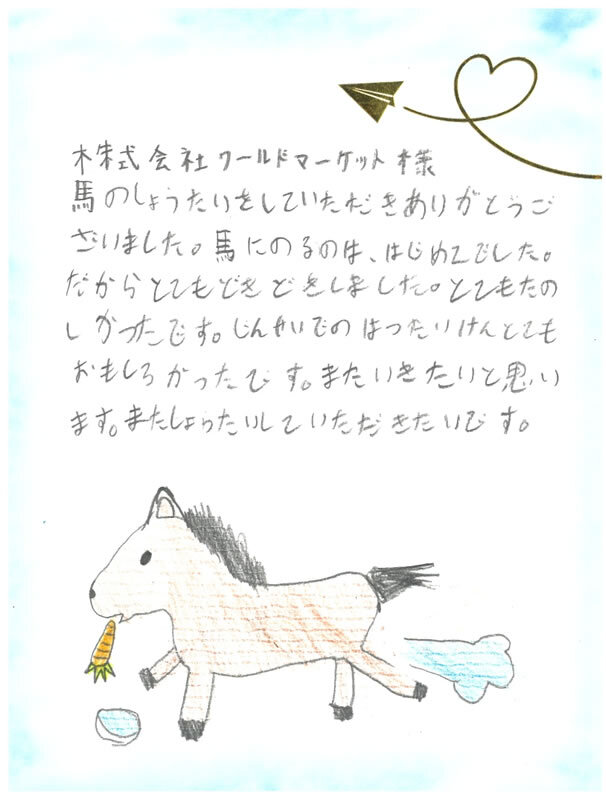 株式会社ワールドマーケット様
馬のしょうたいをしていただきありがとうご
ざいました。馬にのるのは、はじめてでした。
だからとてもどきどきしました。とてもたの
しかったです。じんせいでのはつたいけんとても
おもしろかったです。またいきたいと思い
ます。またしょうたいしていただきたいです。